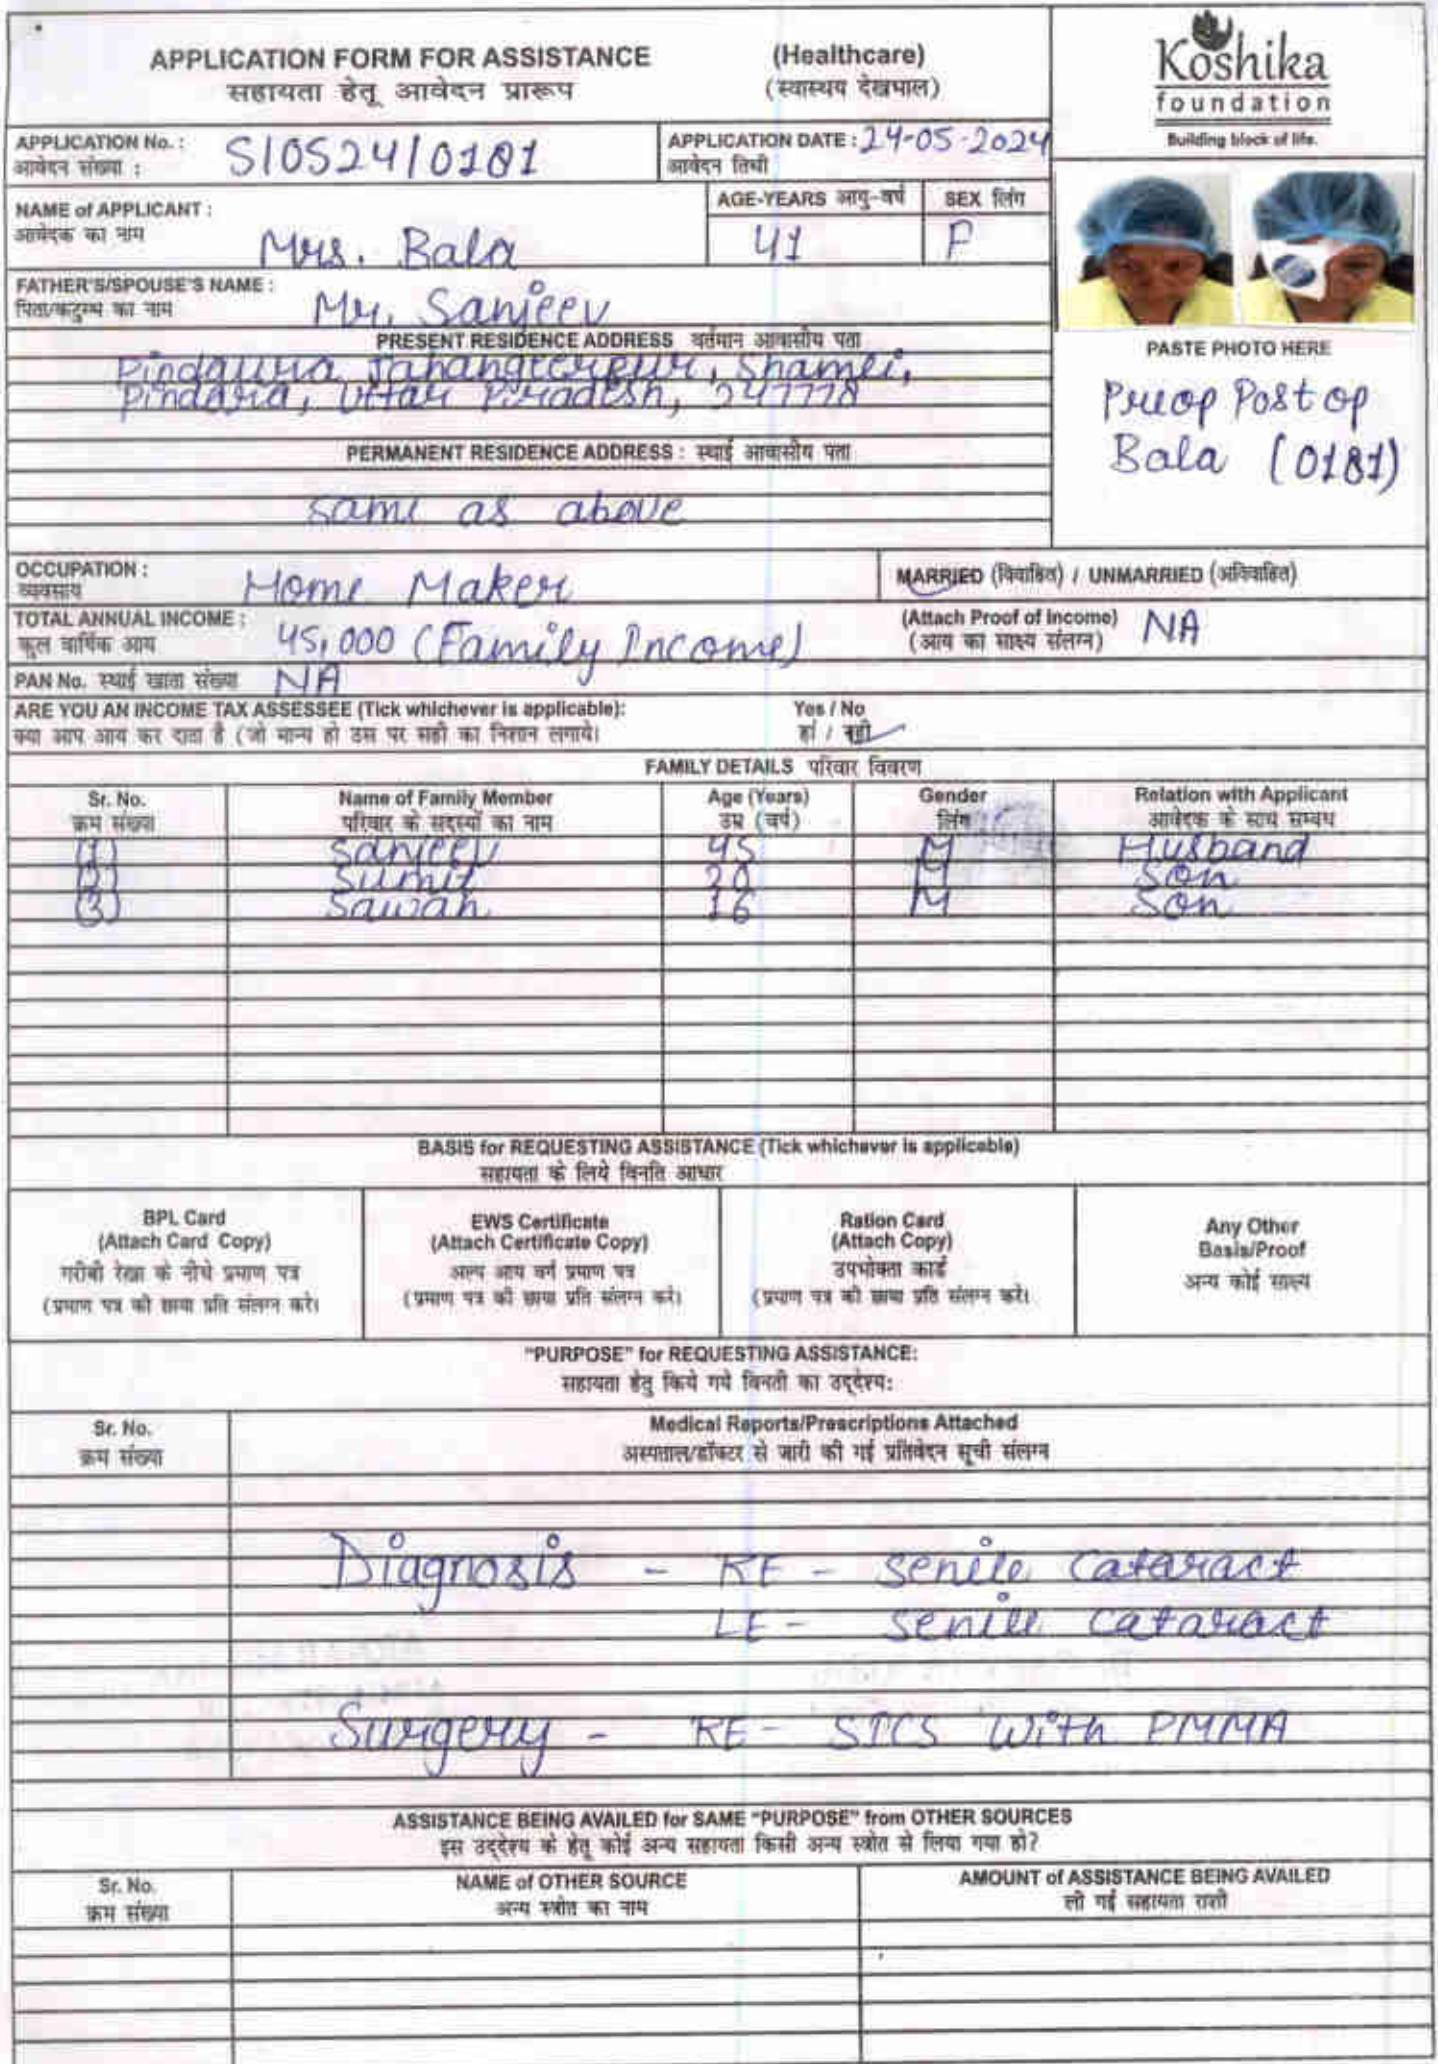 APPLICATION FORM FOR ASSISTANCE (Healthcare)
सहायता हेतू आवेदन प्रारूप (स्वास्थय देखभाल)
Koshika
foundation
Building block of life.
APPLICATION No. : S10524/0181
आवेदन संख्या :
APPLICATION DATE : 24-05-2024
आवेदन तिथी
NAME of APPLICANT : Mrs. Bala
आवेदक का नाम
AGE-YEARS आयु-वर्ष 41
SEX लिंग F
FATHER'S/SPOUSE'S NAME : Mr. Sanjeev
पिता/कटुम्ब का नाम
PRESENT RESIDENCE ADDRESS वर्तमान आवासीय पता
Pindaura Jahangeerpur, Shamli,
Pindara, Uttar Pradesh, 247778
PERMANENT RESIDENCE ADDRESS : स्थाई आवासीय पता
same as above
PASTE PHOTO HERE
Preop Post op
Bala (0181)
OCCUPATION : Home Maker
व्यवसाय
MARRIED (विवाहित) / UNMARRIED (अविवाहित)
TOTAL ANNUAL INCOME : 45,000 (Family Income)
कुल वार्षिक आय
(Attach Proof of Income) NA
(आय का साक्ष्य संलग्न)
PAN No. स्थाई खाता संख्या NA
ARE YOU AN INCOME TAX ASSESSEE (Tick whichever is applicable): Yes / No
क्या आप आय कर दाता है (जो मान्य हो उस पर सही का निशान लगाये। हां / नही
FAMILY DETAILS परिवार विवरण
Sr. No. Name of Family Member Age (Years) Gender Relation with Applicant
क्रम संख्या परिवार के सदस्यों का नाम उम्र (वर्ष) लिंग आवेदक के साथ सम्बध
(1) Sanjeev 45 M Husband
(2) Sumit 20 M Son
(3) Sawan 16 M Son
BASIS for REQUESTING ASSISTANCE (Tick whichever is applicable)
सहायता के लिये विनति आधार
BPL Card
(Attach Card Copy)
गरीबी रेखा के नीचे प्रमाण पत्र
(प्रमाण पत्र की छाया प्रति संलग्न करे।
EWS Certificate
(Attach Certificate Copy)
अल्प आय वर्ग प्रमाण पत्र
(प्रमाण पत्र की छाया प्रति संलग्न करे।
Ration Card
(Attach Copy)
उपभोक्ता कार्ड
(प्रमाण पत्र की छाया प्रति संलग्न करे।
Any Other
Basis/Proof
अन्य कोई साक्ष्य
"PURPOSE" for REQUESTING ASSISTANCE:
सहायता हेतु किये गये विनती का उद्देश्य:
Sr. No. Medical Reports/Prescriptions Attached
क्रम संख्या अस्पताल/डॉक्टर से जारी की गई प्रतिवेदन सूची संलग्न
Diagnosis - RE - Senile Cataract
LE - Senile Cataract
Surgery - RE - SICS with PMMA
ASSISTANCE BEING AVAILED for SAME "PURPOSE" from OTHER SOURCES
इस उद्देश्य के हेतू कोई अन्य सहायता किसी अन्य स्त्रोत से लिया गया हो?
Sr. No. NAME of OTHER SOURCE AMOUNT of ASSISTANCE BEING AVAILED
क्रम संख्या अन्य स्त्रोत का नाम ली गई सहायता राशी